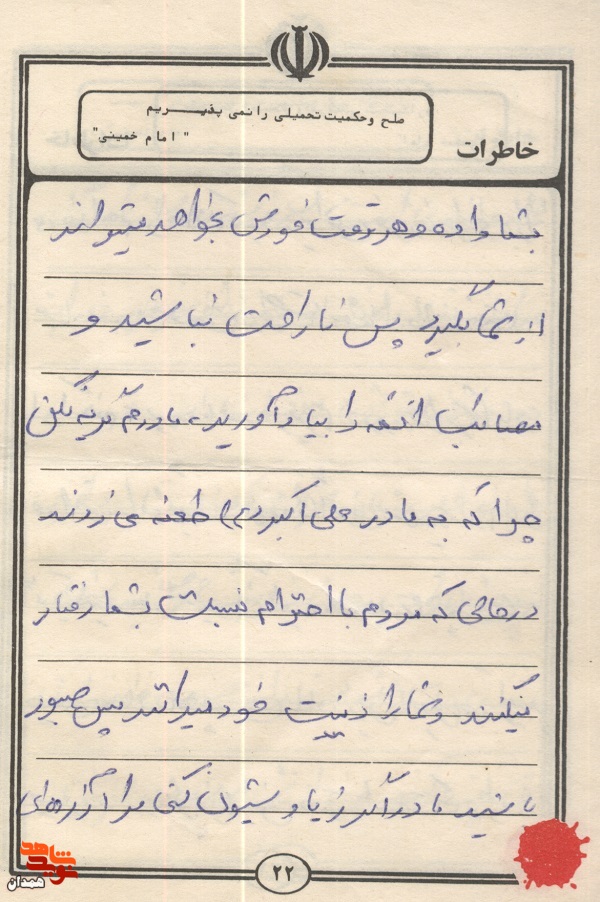 صلح وحکمیت تحمیلی را نمی پذیریم
" امام خمینی"
خاطرات
بشما داده و هر وقت خودش بخواهد میتواند
از شما بگیرد پس ناراحت نباشید و
مصائب ائمه را بیاد آورید، مادرم گریه نکن
چرا که به مادر علی اکبر (ع) طعنه می زدند
درحالی که مردم با احترام نسبت بشما رفتار
میکنند و شما را زینت خود میدانند پس صبور
باشید مادر اگر زیاد شیون کنی مرا آزرده‌ای
۲۲
شاهد
نوید
همدان